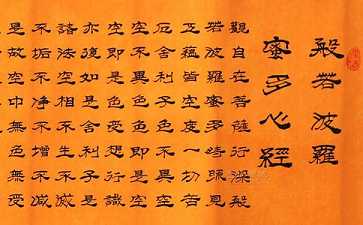 般若波羅
蜜多心經
觀自在菩薩行深般
若波羅蜜多時照見
五蘊皆空度一切苦
厄舍利子色不異空
空不異色色即是空
空即是色受想行識
亦復如是舍利子是
諸法空相不生不滅
不垢不淨不增不減
是故空中無色無受